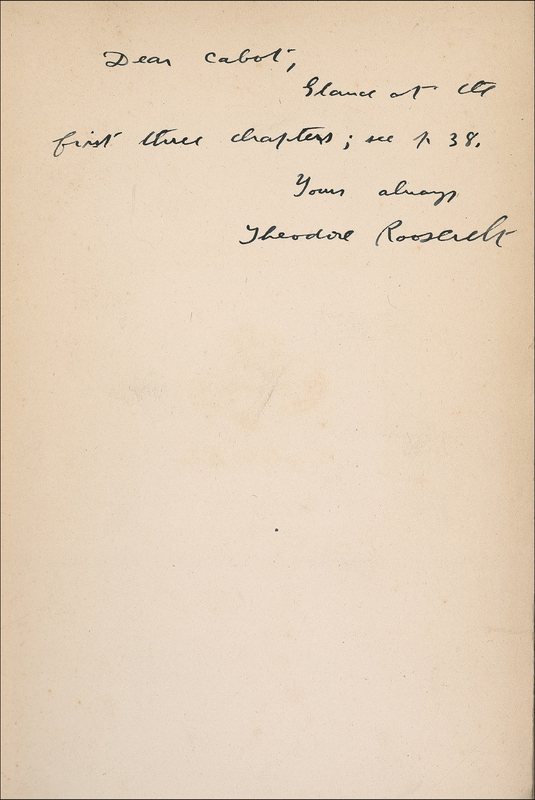 Dear Cabot,
Glance at the
first three chapters; see p 38.
Yours always
Theodore Roosevelt